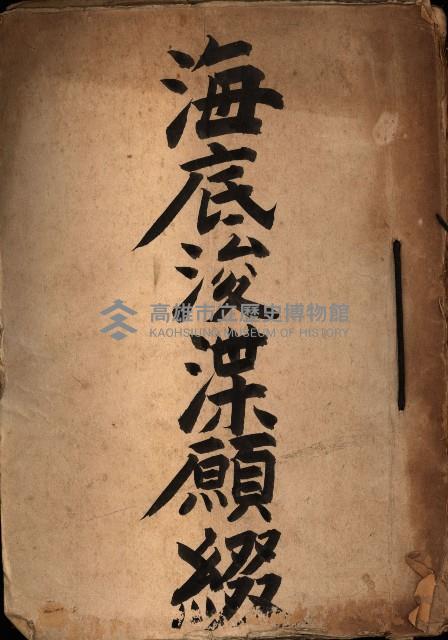 海底浚渫願綴
高雄市立歷史博物館
KAOHSIUNG MUSEUM OF HISTORY